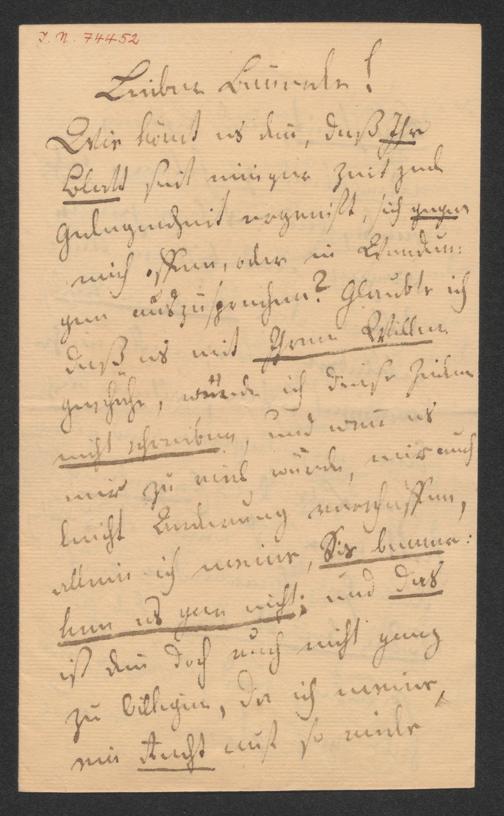 I. N. 74452
Lieber Baüerle!
Wie kom̄t es den̄, daß Ihr
Blatt seit einiger Zeit jede
Gelegenheit ergreift, sich gegen
mich offen, oder in Wendun:
gen auszusprechen? Glaubte ich
daß es mit Ihrem Willen
geschähe, würde ich diese Zeilen
nicht schreiben, und wenn es
mir zu viel würde, mir auch
leicht Änderung verschaffen,
allein ich meine, Sie bemer:
ken es gar nicht; und das
ist den̄ doch auch nicht ganz
zu billigen, da ich meine,
ein Recht auf so viele